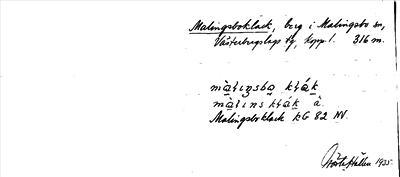 Malingsboklack, berg i Malingsbo sn,
Västerbergslags tg, Kopp l. 316 m.
màlıŋsba klák
màlıns klák à.
Malingsboklack KG 82 NV.
1935